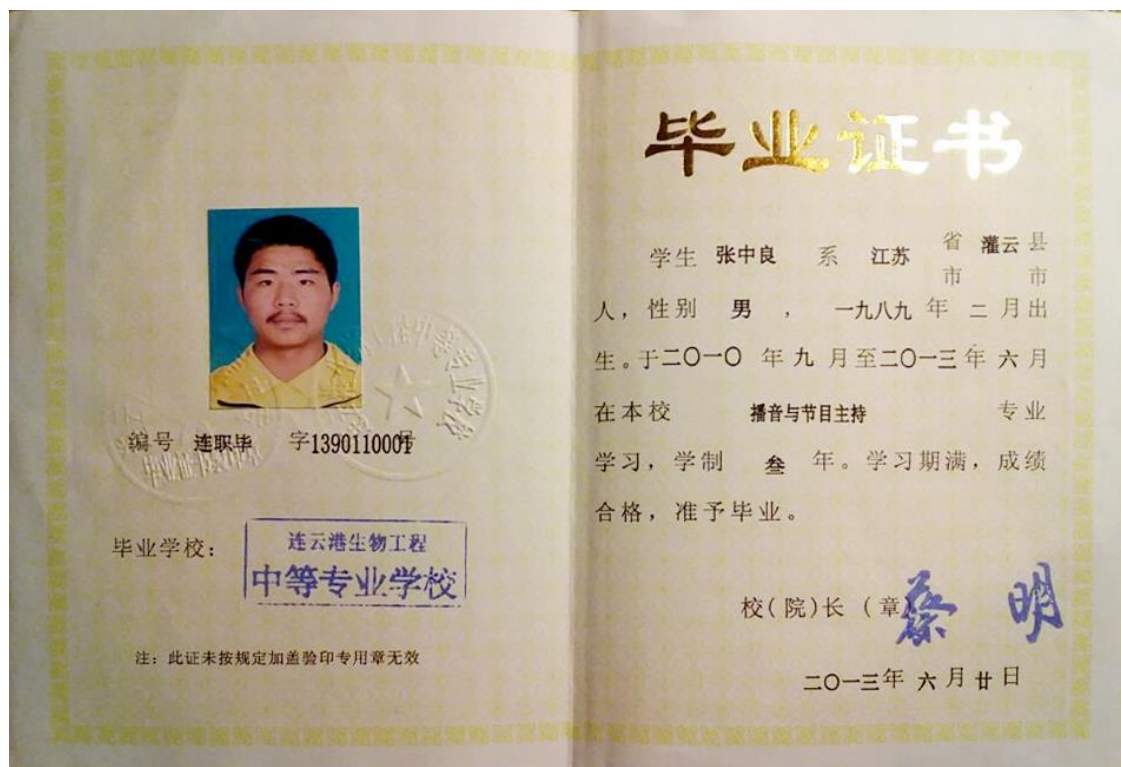 编号 连职毕 字1390110001号
毕业学校：
连云港生物工程
中等专业学校
注：此证未按规定加盖验印专用章无效
毕业证书
学生 张中良 系 江苏 省市 灌云 县市
人，性别 男 ， 一九八九 年 二 月出
生。于二〇一〇 年 九 月至二〇一三年 六 月
在本校 播音与节目主持 专业
学习，学制 叁 年。学习期满，成绩
合格，准予毕业。
校(院)长（章）
蔡明
二〇一三年 六 月 廿 日